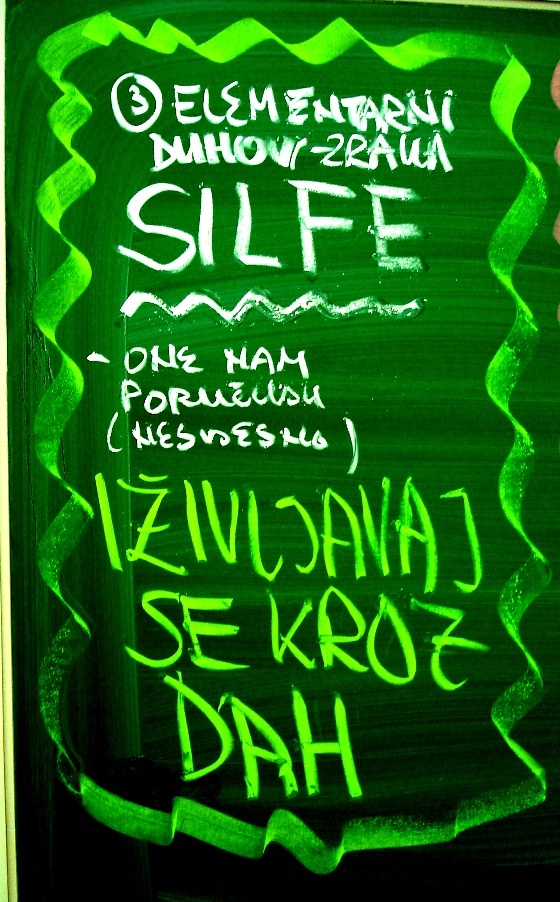 ③ ELEMENTARNI
DUHOVI-ZRAKA
SILFE
- ONE NAM
PORUČUJU
(NESVJESNO)
IŽIVLJAVAJ
SE KROZ
DAH